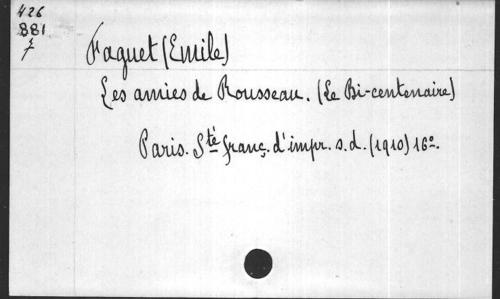 426
881
7
Faguet (Emile)
Les amies de Rousseau. (Le Bi-centenaire)
Paris. Sté franç. d'impr. s.d. (1910) 16º.